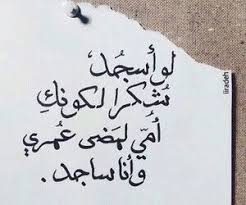 لو أسجُد
شكرا لكونكِ
أمّي لمضى عُمري
وأنا ساجد .
liradeh